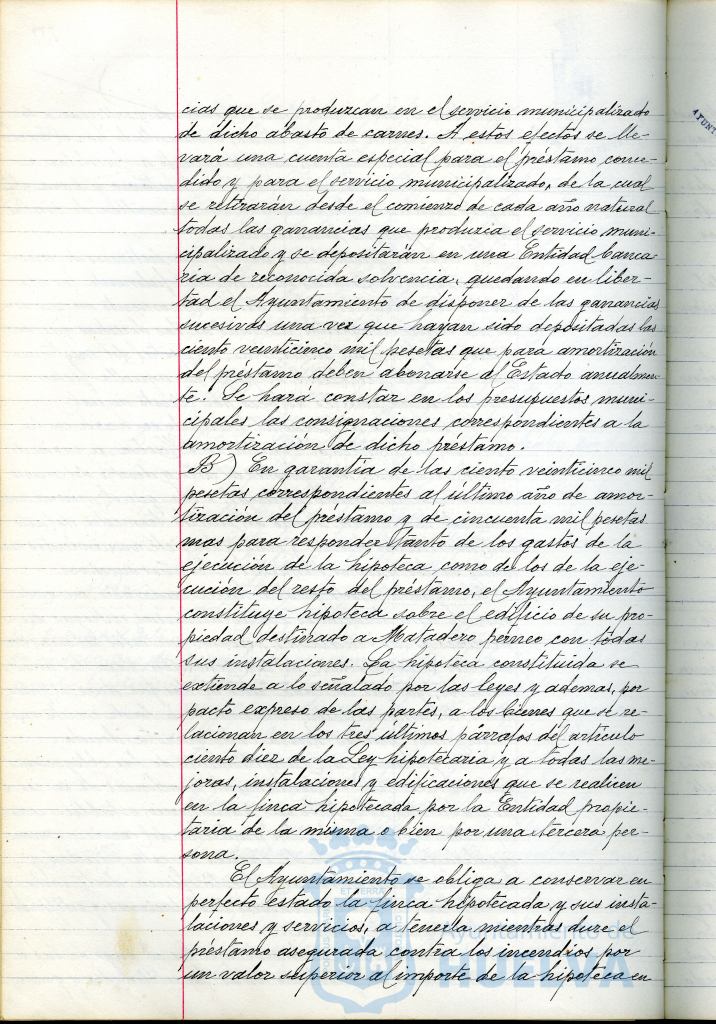 cias que se produzcan en el servicio municipalizado
de dicho abasto de carnes. A estos efectos se lle-
vará una cuenta especial para el préstamo conce-
dido y para el servicio municipalizado, de la cual
se retirarán desde el comienzo de cada año natural
todas las ganancias que produzca el servicio muni-
cipalizado y se depositarán en una Entidad banca-
ria de reconocida solvencia, quedando en liber-
tad el Ayuntamiento de disponer de las ganancias
sucesivas una vez que hayan sido depositadas las
ciento veinticinco mil pesetas que para amortización
del préstamo deben abonarse al Estado anualmen-
te. Se hará constar en los presupuestos muni-
cipales las consignaciones correspondientes a la
amortización de dicho préstamo.
B) En garantía de las ciento veinticinco mil
pesetas correspondientes al último año de amor-
tización del préstamo y de cincuenta mil pesetas
mas para responder tanto de los gastos de la
ejecución de la hipoteca como de los de la eje-
cución del resto del préstamo, el Ayuntamiento
constituye hipoteca sobre el edificio de su pro-
piedad destinado a Matadero pérneo con todas
sus instalaciones. La hipoteca constituida se
extiende a lo señalado por las leyes y ademas, por
pacto expreso de las partes, a los bienes que se re-
lacionan en los tres últimos párrafos del artículo
ciento diez de la Ley hipotecaria y a todas las me-
joras, instalaciones y edificaciones que se realicen
en la finca hipotecada por la Entidad propie-
taria de la misma o bien por una tercera per-
sona.
El Ayuntamiento se obliga a conservar en
perfecto estado la finca hipotecada y sus insta-
laciones y servicios, a tenerla mientras dure el
préstamo asegurada contra los incendios por
un valor superior al importe de la hipoteca en
Ayuntamiento de
HUELVA
AYUNT